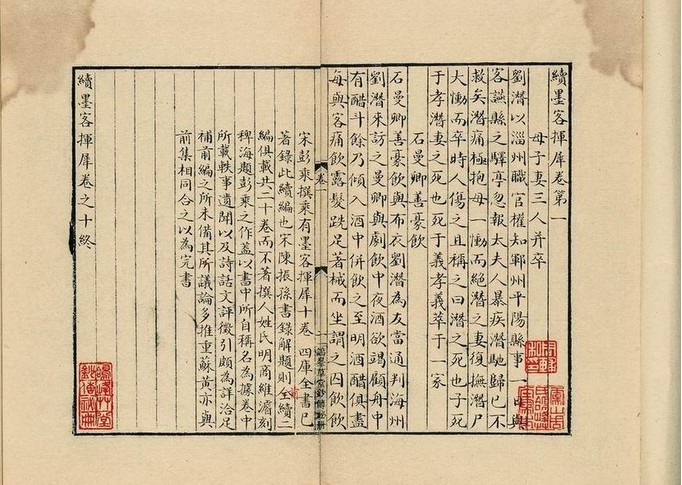 續墨客揮犀卷第一
母子妻三人并卒
劉潛以淄州職官權知鄆州平陽縣事一日與
客讌縣之驛亭忽報太夫人暴疾潛馳歸已不
救矣潛痛極抱母一慟而絕潛之妻復撫潛尸
大慟而卒時人傷之且稱之曰潛之死也子死
于孝潛妻之死也死于義孝義萃于一家
石曼卿善豪飲
石曼卿善豪飲與布衣劉潛為友嘗通判海州
劉潛來訪之曼卿與劇飲中夜酒欲竭顧舟中
有醋斗餘乃傾入酒中併飲之至明酒醋俱盡
每與客痛飲露髮跣足著械而坐謂之囚飲飲
卷一
宋彭乘撰乘有墨客揮犀十卷四庫全書已
著錄此續編也宋陳振孫書錄解題則全續二
編俱載共二十卷而不著撰人姓氏明商維濬刻
稗海題彭乘之作蓋以書中所自稱名為據卷中
所載軼事遺聞以及詩話文評徵引頗為詳洽足
補前編之所未備其所議論多推重蘇黃亦與
前集相同合之以為完書
續墨客揮犀卷之十終